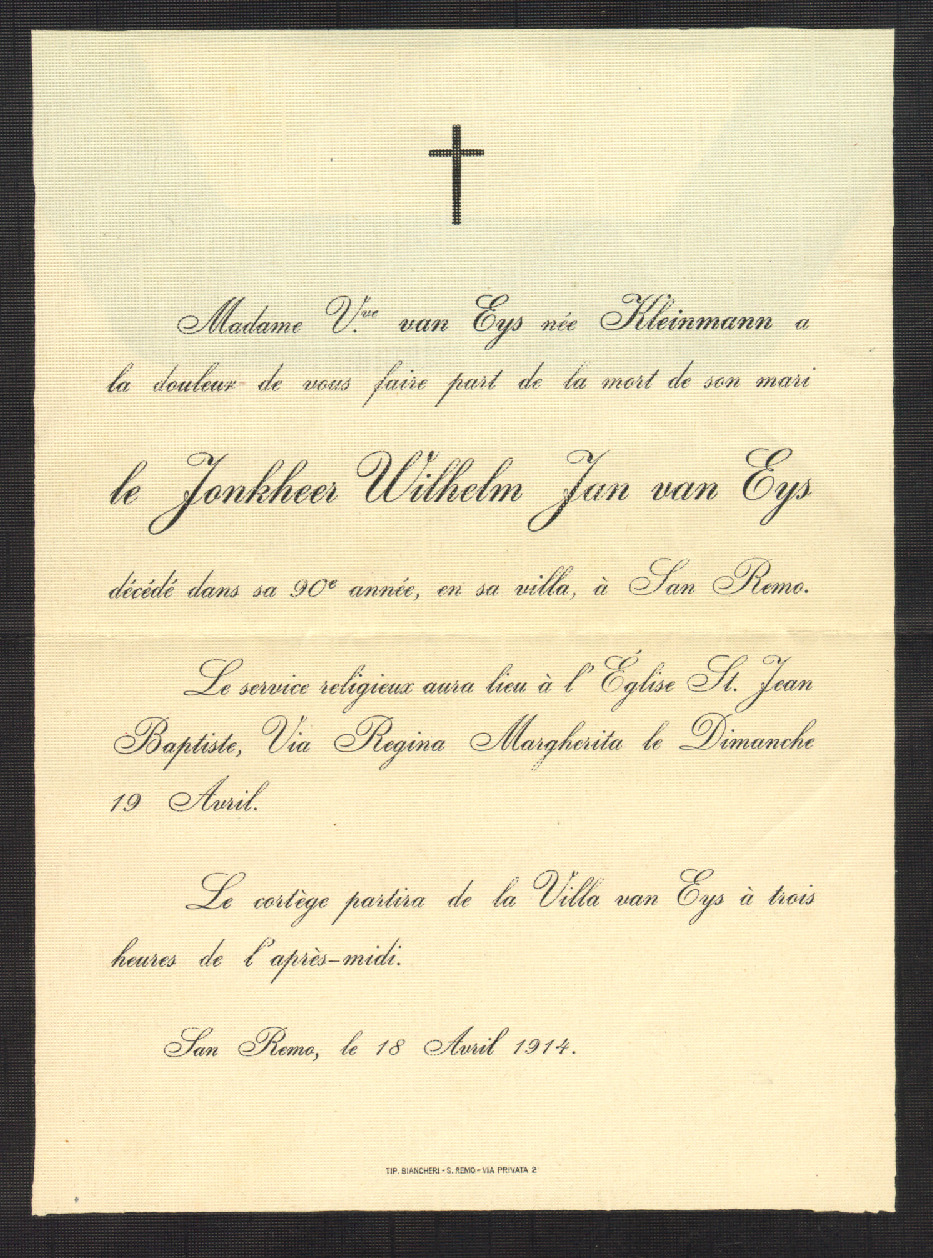 Madame V.ve van Eys née Kleinmann a
la douleur de vous faire part de la mort de son mari
le Jonkheer Wilhelm Jan van Eys
décédé dans sa 90e année, en sa villa, à San Remo.
Le service religieux aura lieu à l'Église St. Jean
Baptiste, Via Regina Margherita le Dimanche
19 Avril.
Le cortège partira de la Villa van Eys à trois
heures de l'après-midi.
San Remo, le 18 Avril 1914.
TIP. BIANCHERI - S. REMO - VIA PRIVATA 2